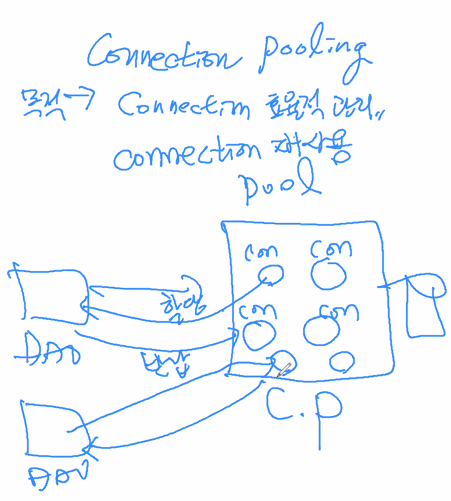 Connection Pooling
목적→ Connection 효율적 관리,,
connection 재사용
pool
con con
할당
con con
DAO
반납
C.P
DAO